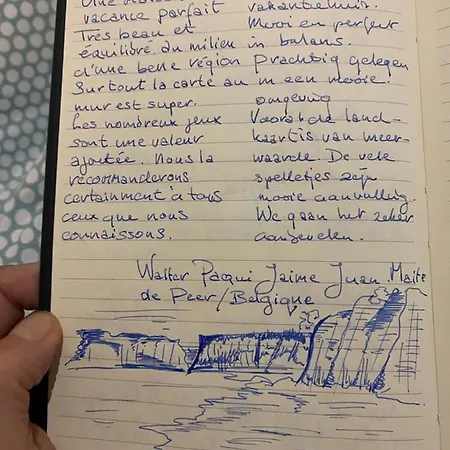 vacance parfait
Très beau et
équilibré au milieu
d'une belle région
Surtout la carte au
mur est super.
Les nombreux jeux
sont une valeur
ajoutée. Nous la
recommanderons
certainement à tous
ceux que nous
connaissons.
vakantiehuis.
Mooi en perfect
in balans.
Prachtig gelegen
in een mooie
omgeving
Vooral de land-
kaart is van meer-
waarde. De vele
spelletjes zijn
mooie aanvulling.
We gaan het zeker
aanbevelen.
Walter Paqui Jaime Juan Maite
de Peer/Belgique